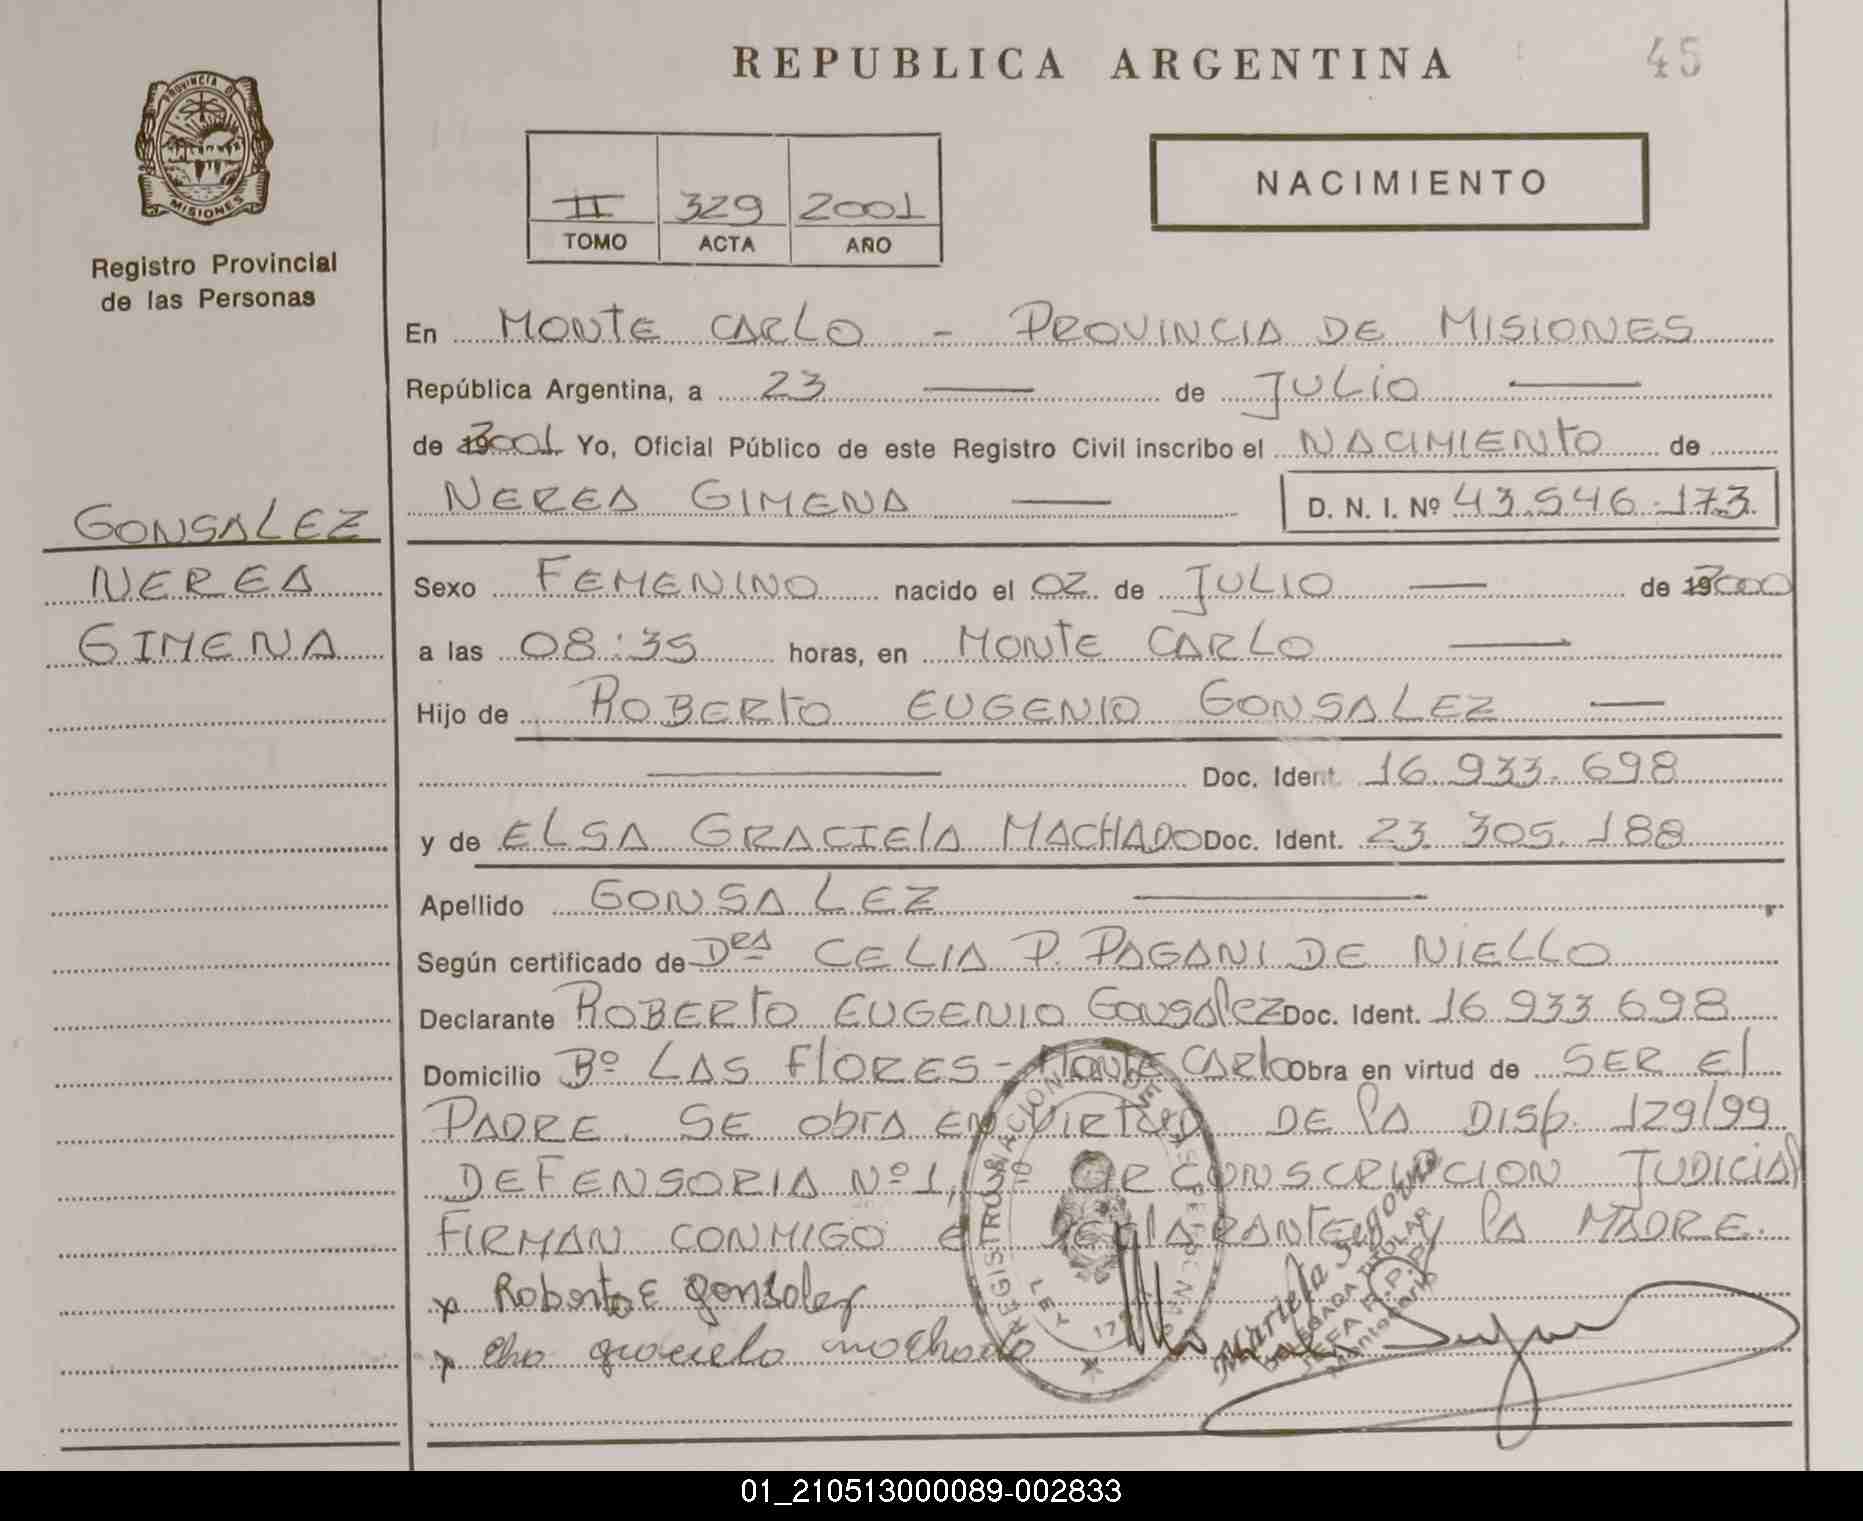 REPUBLICA ARGENTINA
45
PROVINCIA DE
MISIONES
Registro Provincial
de las Personas
II 329 2001
TOMO ACTA AÑO
NACIMIENTO
En MONTE CARLO - PROVINCIA DE MISIONES
República Argentina, a 23 de JULIO
de 2001 Yo, Oficial Público de este Registro Civil inscribo el NACIMIENTO de
NEREA GIMENA D. N. I. Nº 43.546.173
GONSALEZ
NEREA
GIMENA
Sexo FEMENINO nacido el 02 de JULIO de 2000
a las 08:35 horas, en MONTE CARLO
Hijo de ROBERTO EUGENIO GONSALEZ
Doc. Ident. 16.933.698
y de ELSA GRACIELA MACHADO Doc. Ident. 23.305.188
Apellido GONSALEZ
Según certificado de DRA CELIA P. PAGANI DE NIELLO
Declarante ROBERTO EUGENIO GONSALEZ Doc. Ident. 16.933.698
Domicilio Bº LAS FLORES - MONTE CARLO Obra en virtud de SER EL
PADRE. SE OBRA EN VIRTUD DE LA DISP. 129/99
DEFENSORIA Nº 1, 3º CIRCUNSCRIPCION JUDICIAL
FIRMAN CONMIGO EL DECLARANTE Y LA MADRE.
x Roberto E gonsalez
x graciela machado
Mariela Segovia
DELEGADA TITULAR
JEFA R.P.P.
Montecarlo
LEY
01_210513000089-002833